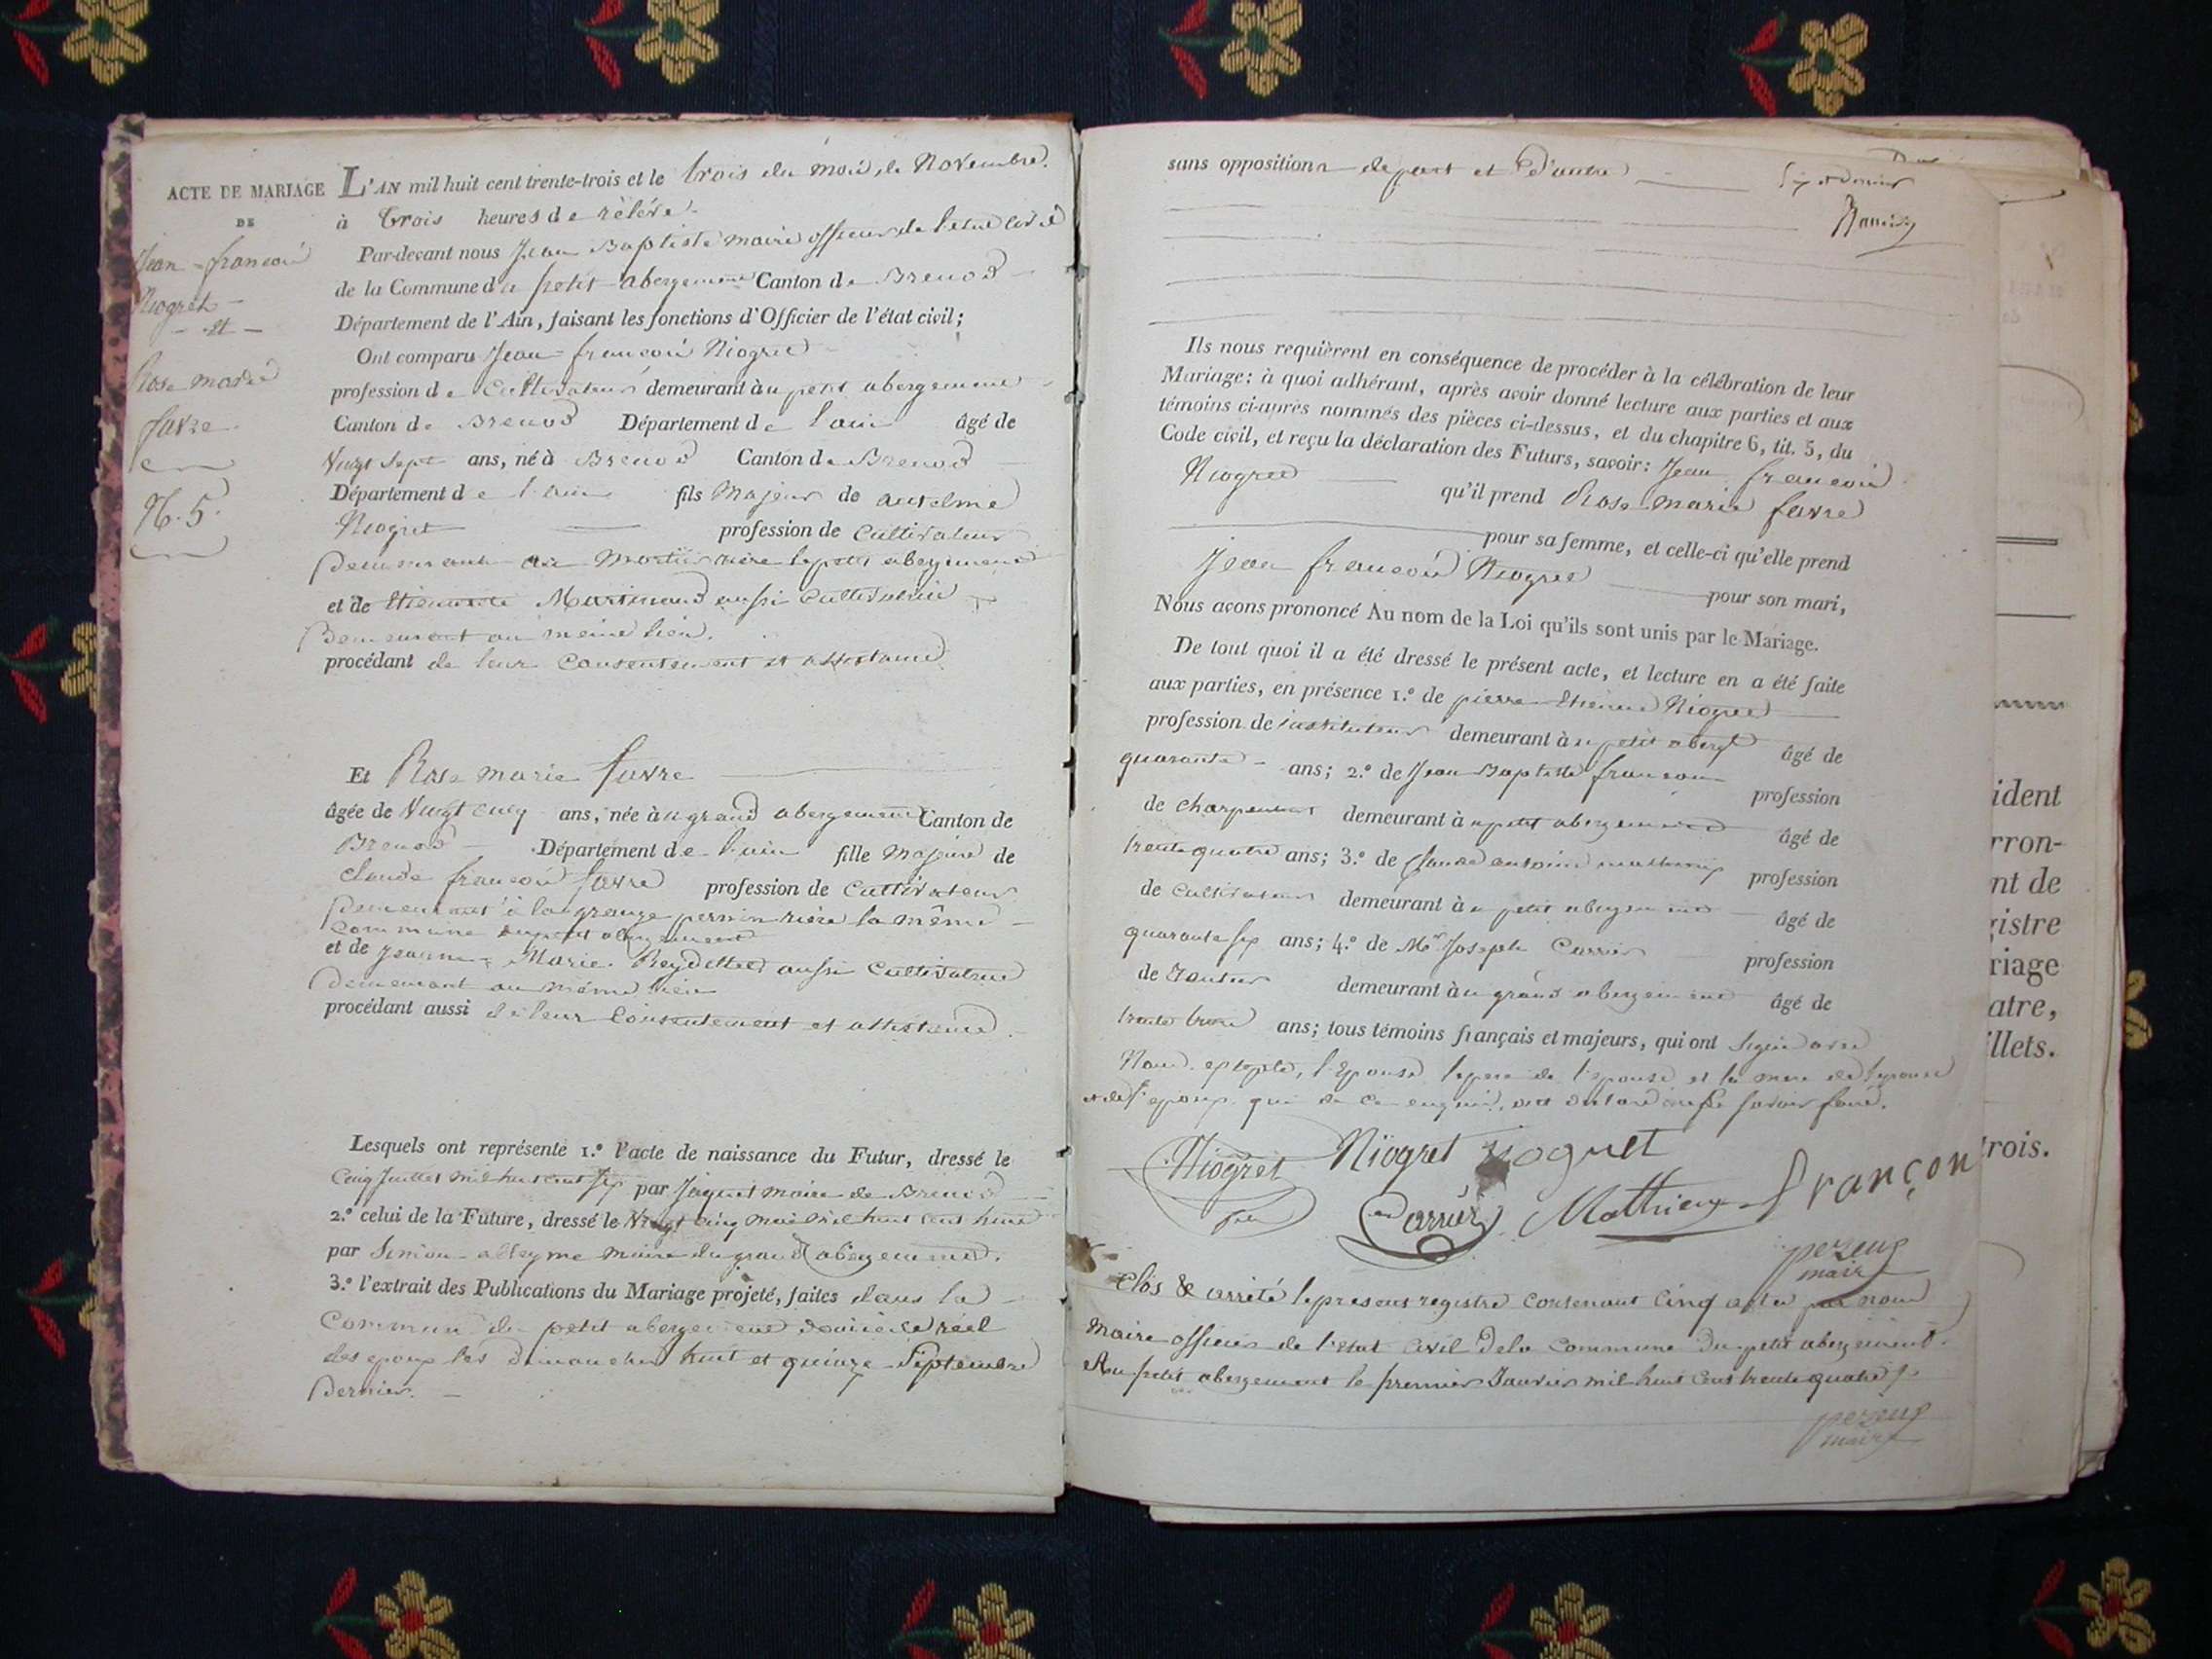 ACTE DE MARIAGE
DE
Jean-françois
Niogret
- et -
Rose marie
favre
N. 5.
L'AN mil huit cent trente-trois et le trois du mois de Novembre.
à trois heures de rélévé
Par-devant nous Jean Baptiste maire officier de l'etat civil
de la Commune du petit abergement Canton de Brenod
Département de l'Ain, faisant les fonctions d'Officier de l'état civil;
Ont comparu Jean françois Niogret
profession de Cultivateur demeurant au petit abergement
Canton de Brenod Département de l'ain âgé de
Vingt sept ans, né à Brenod Canton de Brenod
Département de l'ain fils Majeur de antelme
Niogret profession de Cultivateur
Demeurant au rière le petit abergement
et de Martinand aussi Cultivatrice
Demeurant au même lieu.
procédant de leur Consentement et assistance
Et Rose marie favre
âgée de Vingt cinq ans, née au grand abergement Canton de
Brenod Département de l'ain fille Majeure de
Claude françois favre profession de Cultivateur
Demeurant à la grange perrin rière la même
Commune du petit abergement
et de Jeanne-Marie aussi Cultivatrice
Demeurant au même lieu
procédant aussi de leur Consentement et assistance
Lesquels ont représenté 1.º l'acte de naissance du Futur, dressé le
Cinq Juillet mil huit cent six par Joguet maire de Brenod
2.º celui de la Future, dressé le Vingt cinq mai mil huit cent huit
par Simon alleyme maire du grand abergement.
3.º l'extrait des Publications du Mariage projeté, faites dans la
Commune du petit abergement domicile réel
des epoux les Dimanches huit et quinze Septembre
Dernier.
sans opposition de part et d'autre
Ils nous requièrent en conséquence de procéder à la célébration de leur
Mariage: à quoi adhérant, après avoir donné lecture aux parties et aux
témoins ci-après nommés des pièces ci-dessus, et du chapitre 6, tit. 5, du
Code civil, et reçu la déclaration des Futurs, savoir: Jean françois
Niogret qu'il prend Rose marie favre
pour sa femme, et celle-ci qu'elle prend
Jean françois Niogret pour son mari,
Nous avons prononcé Au nom de la Loi qu'ils sont unis par le Mariage.
De tout quoi il a été dressé le présent acte, et lecture en a été faite
aux parties, en présence 1.º de pierre Etienne Niogret
profession de instituteur demeurant au petit abergt âgé de
quarante ans; 2.º de Jean Baptiste françon profession
de charpentier demeurant au petit abergement âgé de
trente quatre ans; 3.º de Claude antoine mathieu profession
de Cultivateur demeurant au petit abergement âgé de
quarante six ans; 4.º de Mr Joseph Carrier profession
de demeurant au grand abergement âgé de
trente ans; tous témoins français et majeurs, qui ont signé avec
Nous excepté, l'Epouse le pere de l'epouse et la mere de l'epouse
et de l'epoux qui de ce enquis, ont declaré ne savoir faire.
Niogret Niogret joguet
Carrier Mathieu françon
maire
Clos & arrêté le present registre Contenant Cinq actes par nous
Maire officier de l'etat Civil de la Commune Du petit abergement.
Au petit abergement le premier Janvier mil huit cent trente quatre
maire
ident
rron-
nt de
gistre
riage
atre,
illets.
trois.